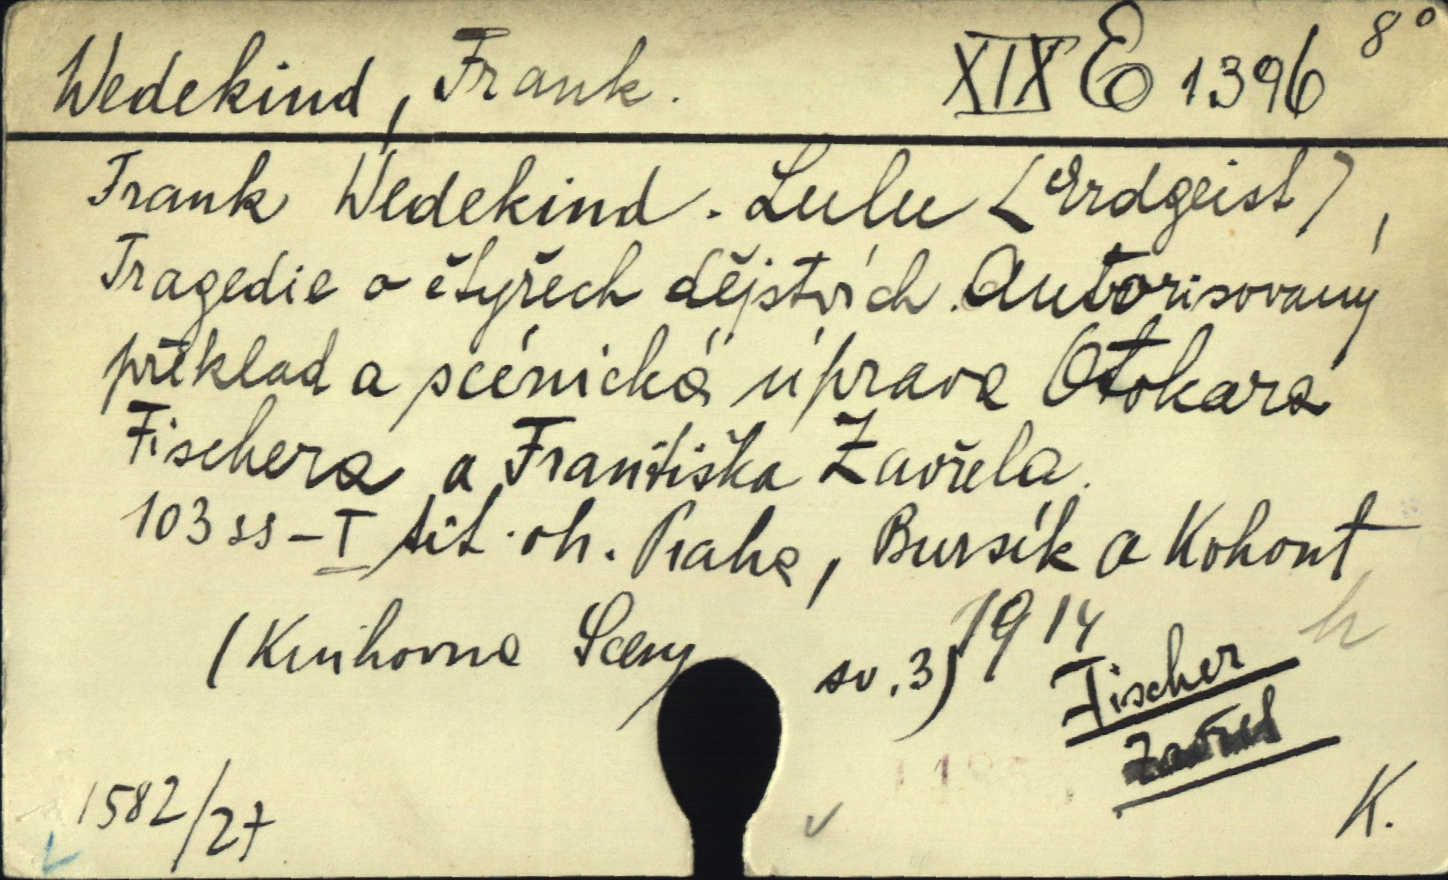 Wedekind, Frank. XIX E 1396 8°
Frank Wedekind. Lulu (Erdgeist),
Tragedie o čtyřech dějstvích. Autorisovaný
překlad a scénická úprava Otokara
Fischera a Františka Zavřela.
103 ss - I tit. ob. Praha, Bursík a Kohout
1914
(Knihovna Sceny sv. 3)
Fischer
Zavřel
1582/27
K.